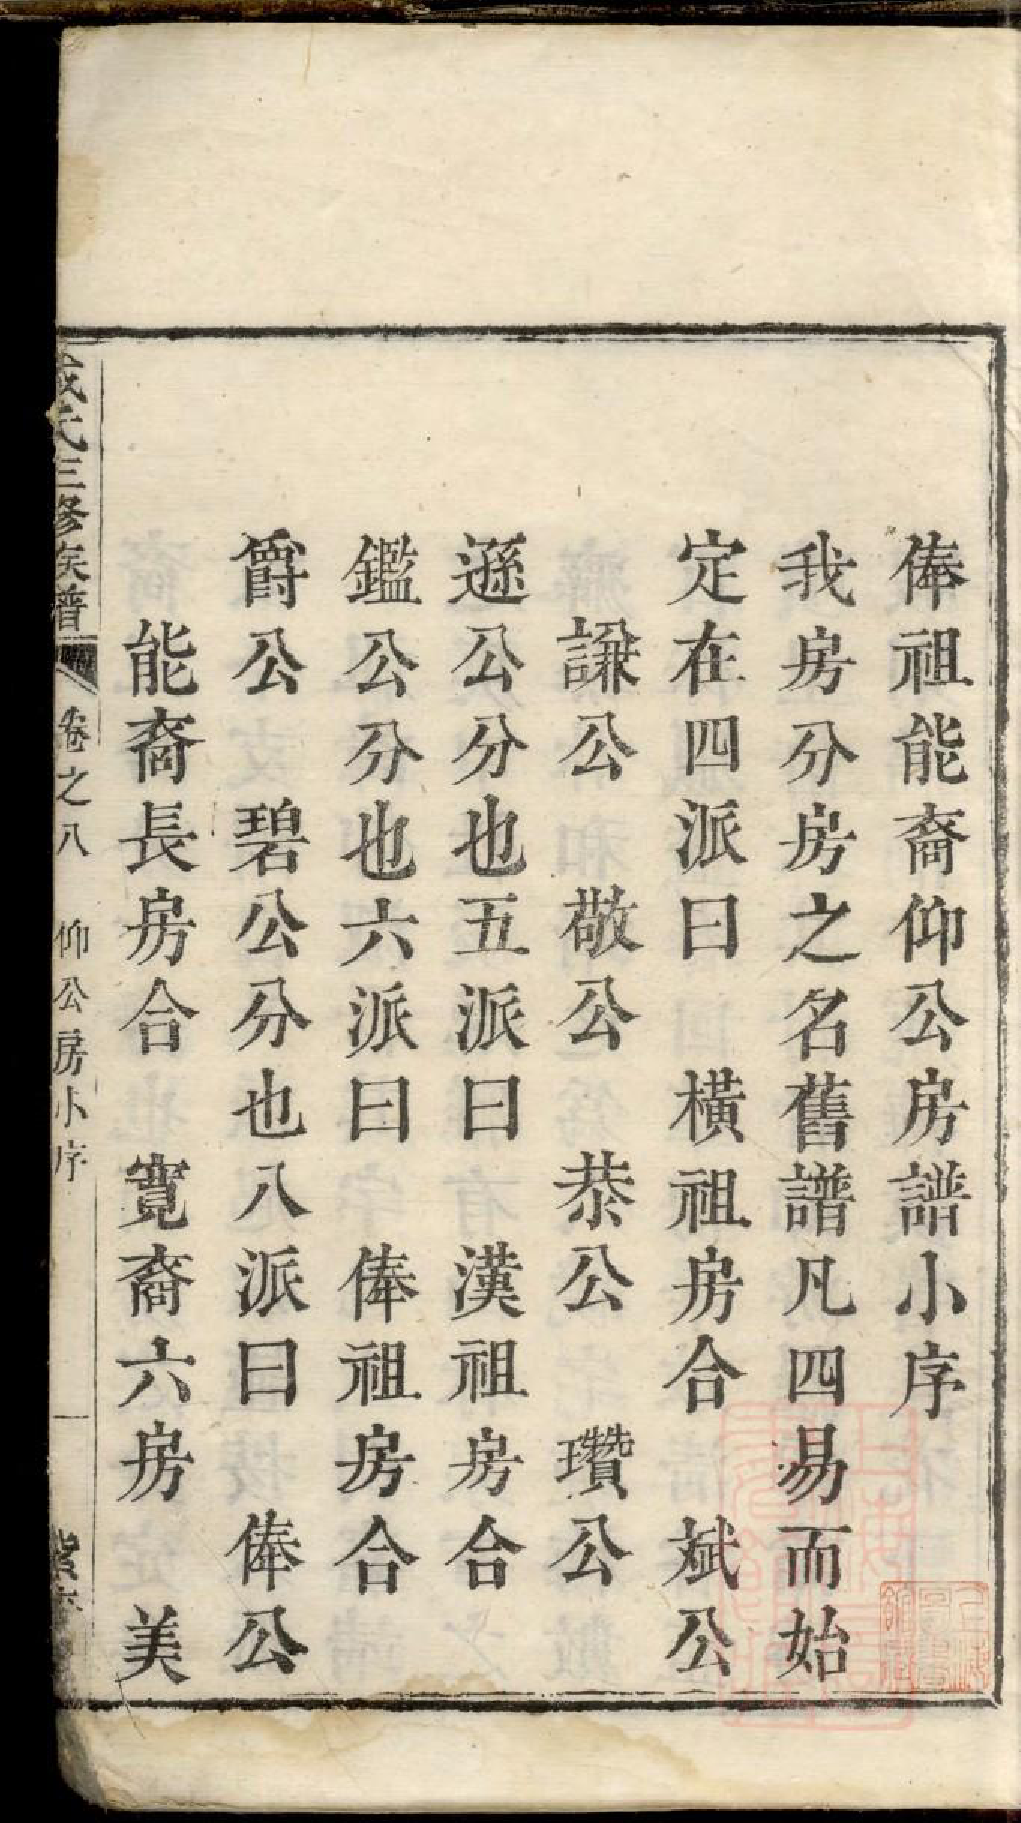 俸祖能裔仰公房譜小序
我房分房之名舊譜凡四易而始
定在四派曰　橫祖房合　斌公
謙公　敬公　恭公　瓚公
遜公分也五派曰　漢祖房合
鑑公分也六派曰　俸祖房合
爵公　碧公分也八派曰　俸公
能裔長房合　寬裔六房　美
氏三修族譜　卷之八　仰公房小序　一